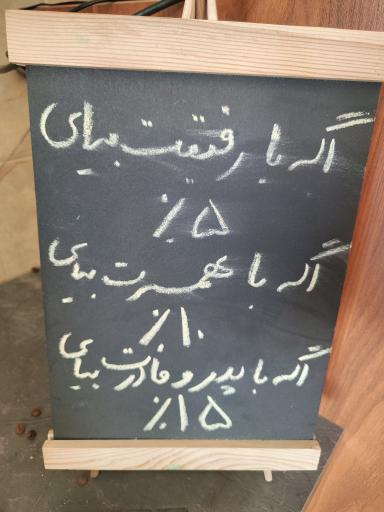 اگه با رفیقت بیای
۵٪
اگه با همسرت بیای
۱۰٪
اگه با پدر و مادرت بیای
۱۵٪